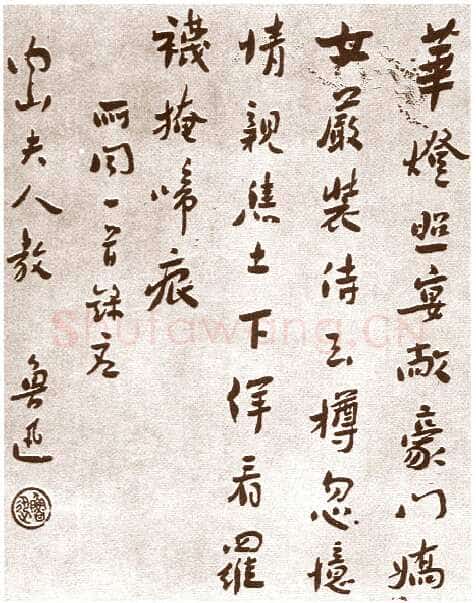 華燈照宴敞豪門嬌
女嚴裝侍玉樽忽憶
情親焦土下佯看羅
襪掩啼痕
所聞一首録应
内山夫人教 魯迅
魯迅
Shufawang.CN